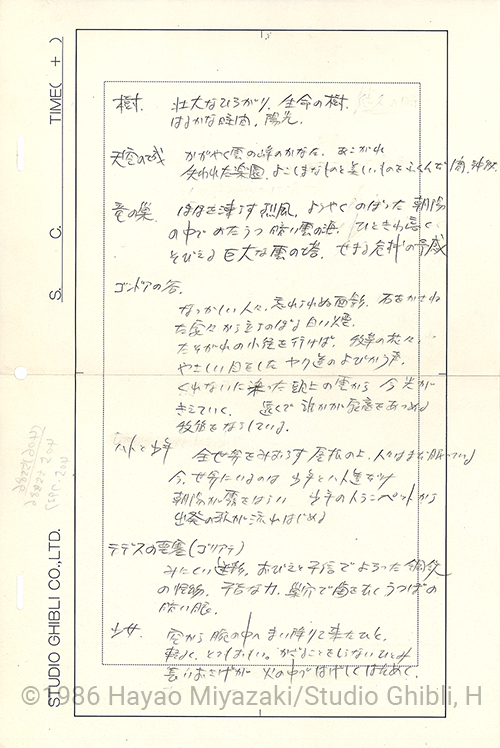 樹. 壮大なひろがり. 生命の樹.
はるかな時間. 陽光.
天空の城 かがやく雲の峰のかなた. あこがれ
失われた楽園. よこしまなものと美しいものをふくんだ
竜の巣. ほほを凍らす烈風. ようやくのぼった朝陽
の中でのたうつ暗い雲の海. ひときわ高く
そびえる巨大な雲の塔. せまる危機の予感
ゴンドアの谷.
なつかしい人々. 忘れられぬ面影. 石をかさねた
家々から立ちのぼる白い煙.
たそがれの小径を行けば. 牧草の
やさしい目をした ヤク達のよびかう声.
くれないに染った頭上の雲から 今 光が
きえていく. 遠くで誰かが家畜をあつめる
をならしている.
ハトと少年 全世界をみおろす屋根の上. 人々はまだ眠っている
今. 世界にいるのは 少年とハト達だけ
朝陽が霧をはらい 少年のトランペットから
出発の歌が流れはじめる
テデスの要塞(ゴリアテ)
みにくい おびえと不信でよろった鋼鉄
の怪物. 不吉な力. 巣穴で歯をむくうつぼの
暗い眼.
少女. 空から腕の中へまい降りて来たひと.
軽く. とうばしい. かざることをしらないひとみ
長いおさげが 火の中ではげしくはためく.
S. C. TIME( + )
STUDIO GHIBLI CO.,LTD.
©1986 Hayao Miyazaki/Studio Ghibli, H